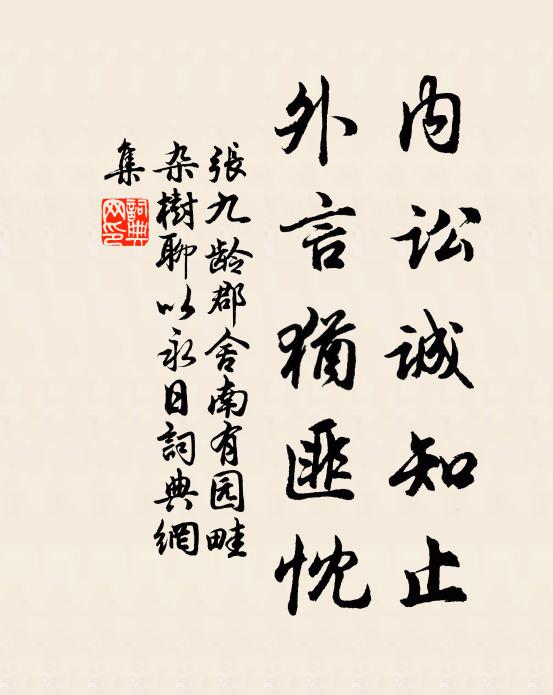 内讼诚知止
外言犹匪忱
張九龄郡舍南有园畦
杂樹聊以永日詞典網
集
詞典
网印